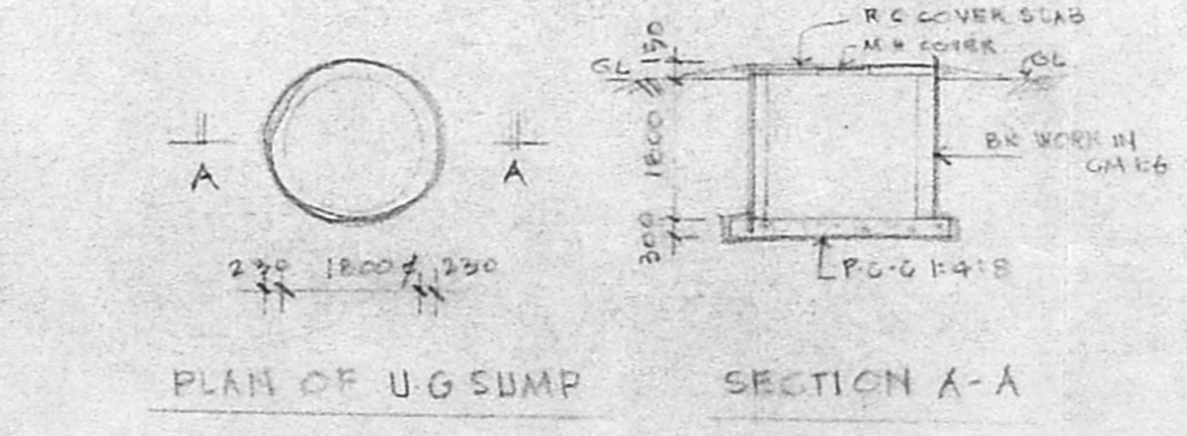 A
A
230 1800 ∅ 230
PLAN OF U.G SUMP
R C COVER SLAB
M H COVER
GL
GL
150
1800
300
BK WORK IN
CM 1:6
P.C.C 1:4:8
SECTION A-A